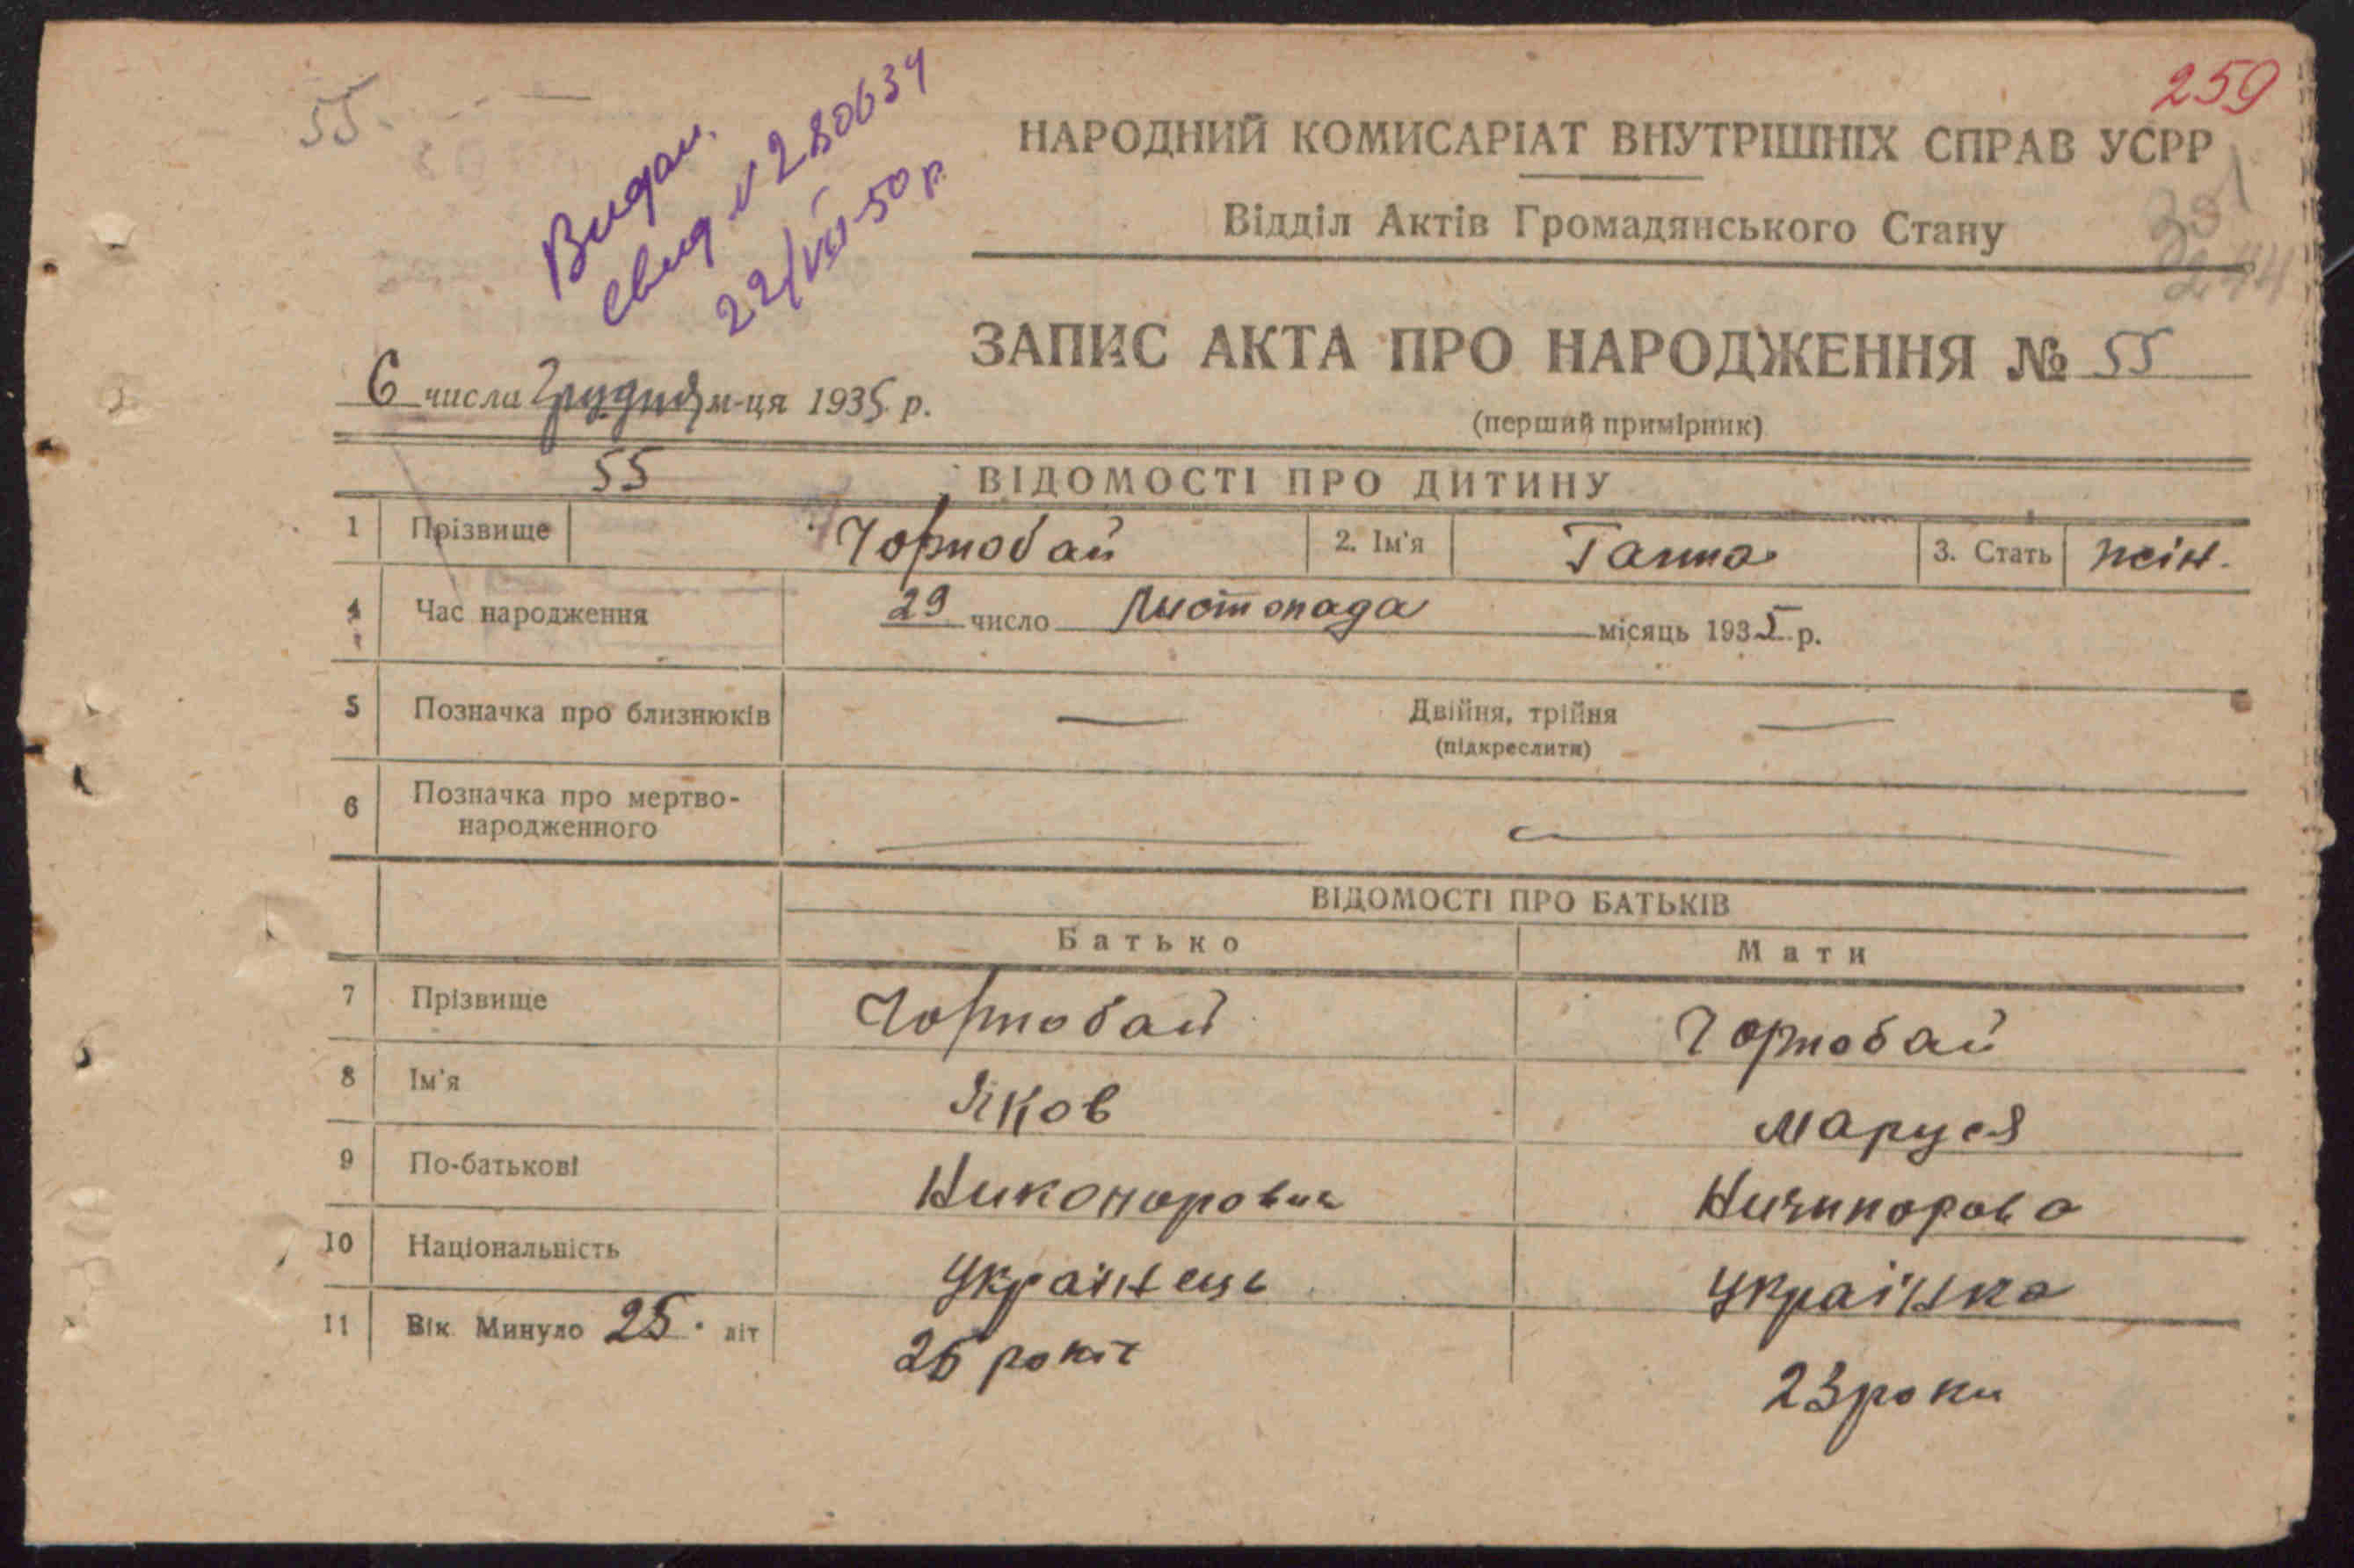 259
55.
Видан.
свид. № 280634
22/VIII-50 р.
НАРОДНИЙ КОМИСАРІАТ ВНУТРІШНІХ СПРАВ УСРР
Відділ Актів Громадянського Стану
244
ЗАПИС АКТА ПРО НАРОДЖЕННЯ № 55
6 числа Грудня м-ця 1935 р.
(перший примірник)
55 ВІДОМОСТІ ПРО ДИТИНУ
1 Прізвище Чорнобай 2. Ім'я Ганна 3. Стать жін.
4 Час народження 29 число Листопада місяць 1935 р.
5 Позначка про близнюків — Двійня, трійня —
(підкреслити)
6 Позначка про мертво-
народженного
ВІДОМОСТІ ПРО БАТЬКІВ
Батько Мати
7 Прізвище Чорнобай Чорнобай
8 Ім'я Яков Маруся
9 По-батькові Никонорович Ничипорова
10 Національність Українець Українка
11 Вік. Минуло 25. літ 25 років 23 роки